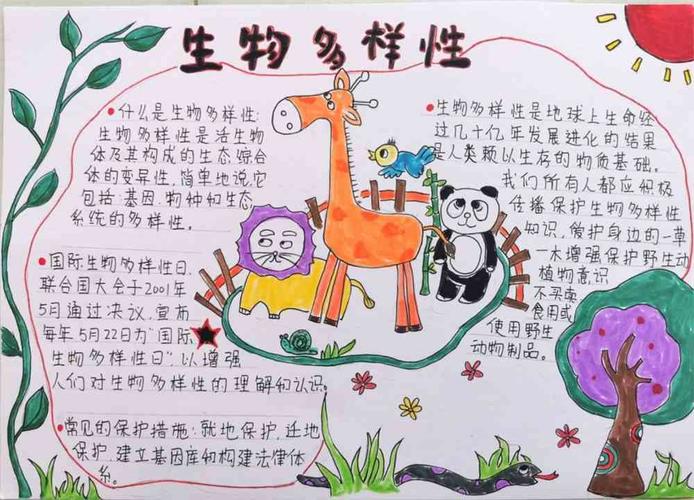 生物多样性
•什么是生物多样性:
生物多样性是活生物
体及其构成的生态综合
体的变异性,简单地说,它
包括:基因、物种和生态
系统的多样性。
•国际生物多样性日,
联合国大会于2001年
5月通过决议,宣布
每年5月22日为"国际
生物多样性日",以增强
人们对生物多样性的理解和认识。
•常见的保护措施:就地保护、迁地
保护、建立基因库和构建法律体
系。
•生物多样性是地球上生命经
过几十亿年发展进化的结果
是人类赖以生存的物质基础。
我们所有人都应积极
传播保护生物多样性
知识,爱护身边的一草
一木增强保护野生动
植物意识
不买卖
食用或
使用野生
动物制品。